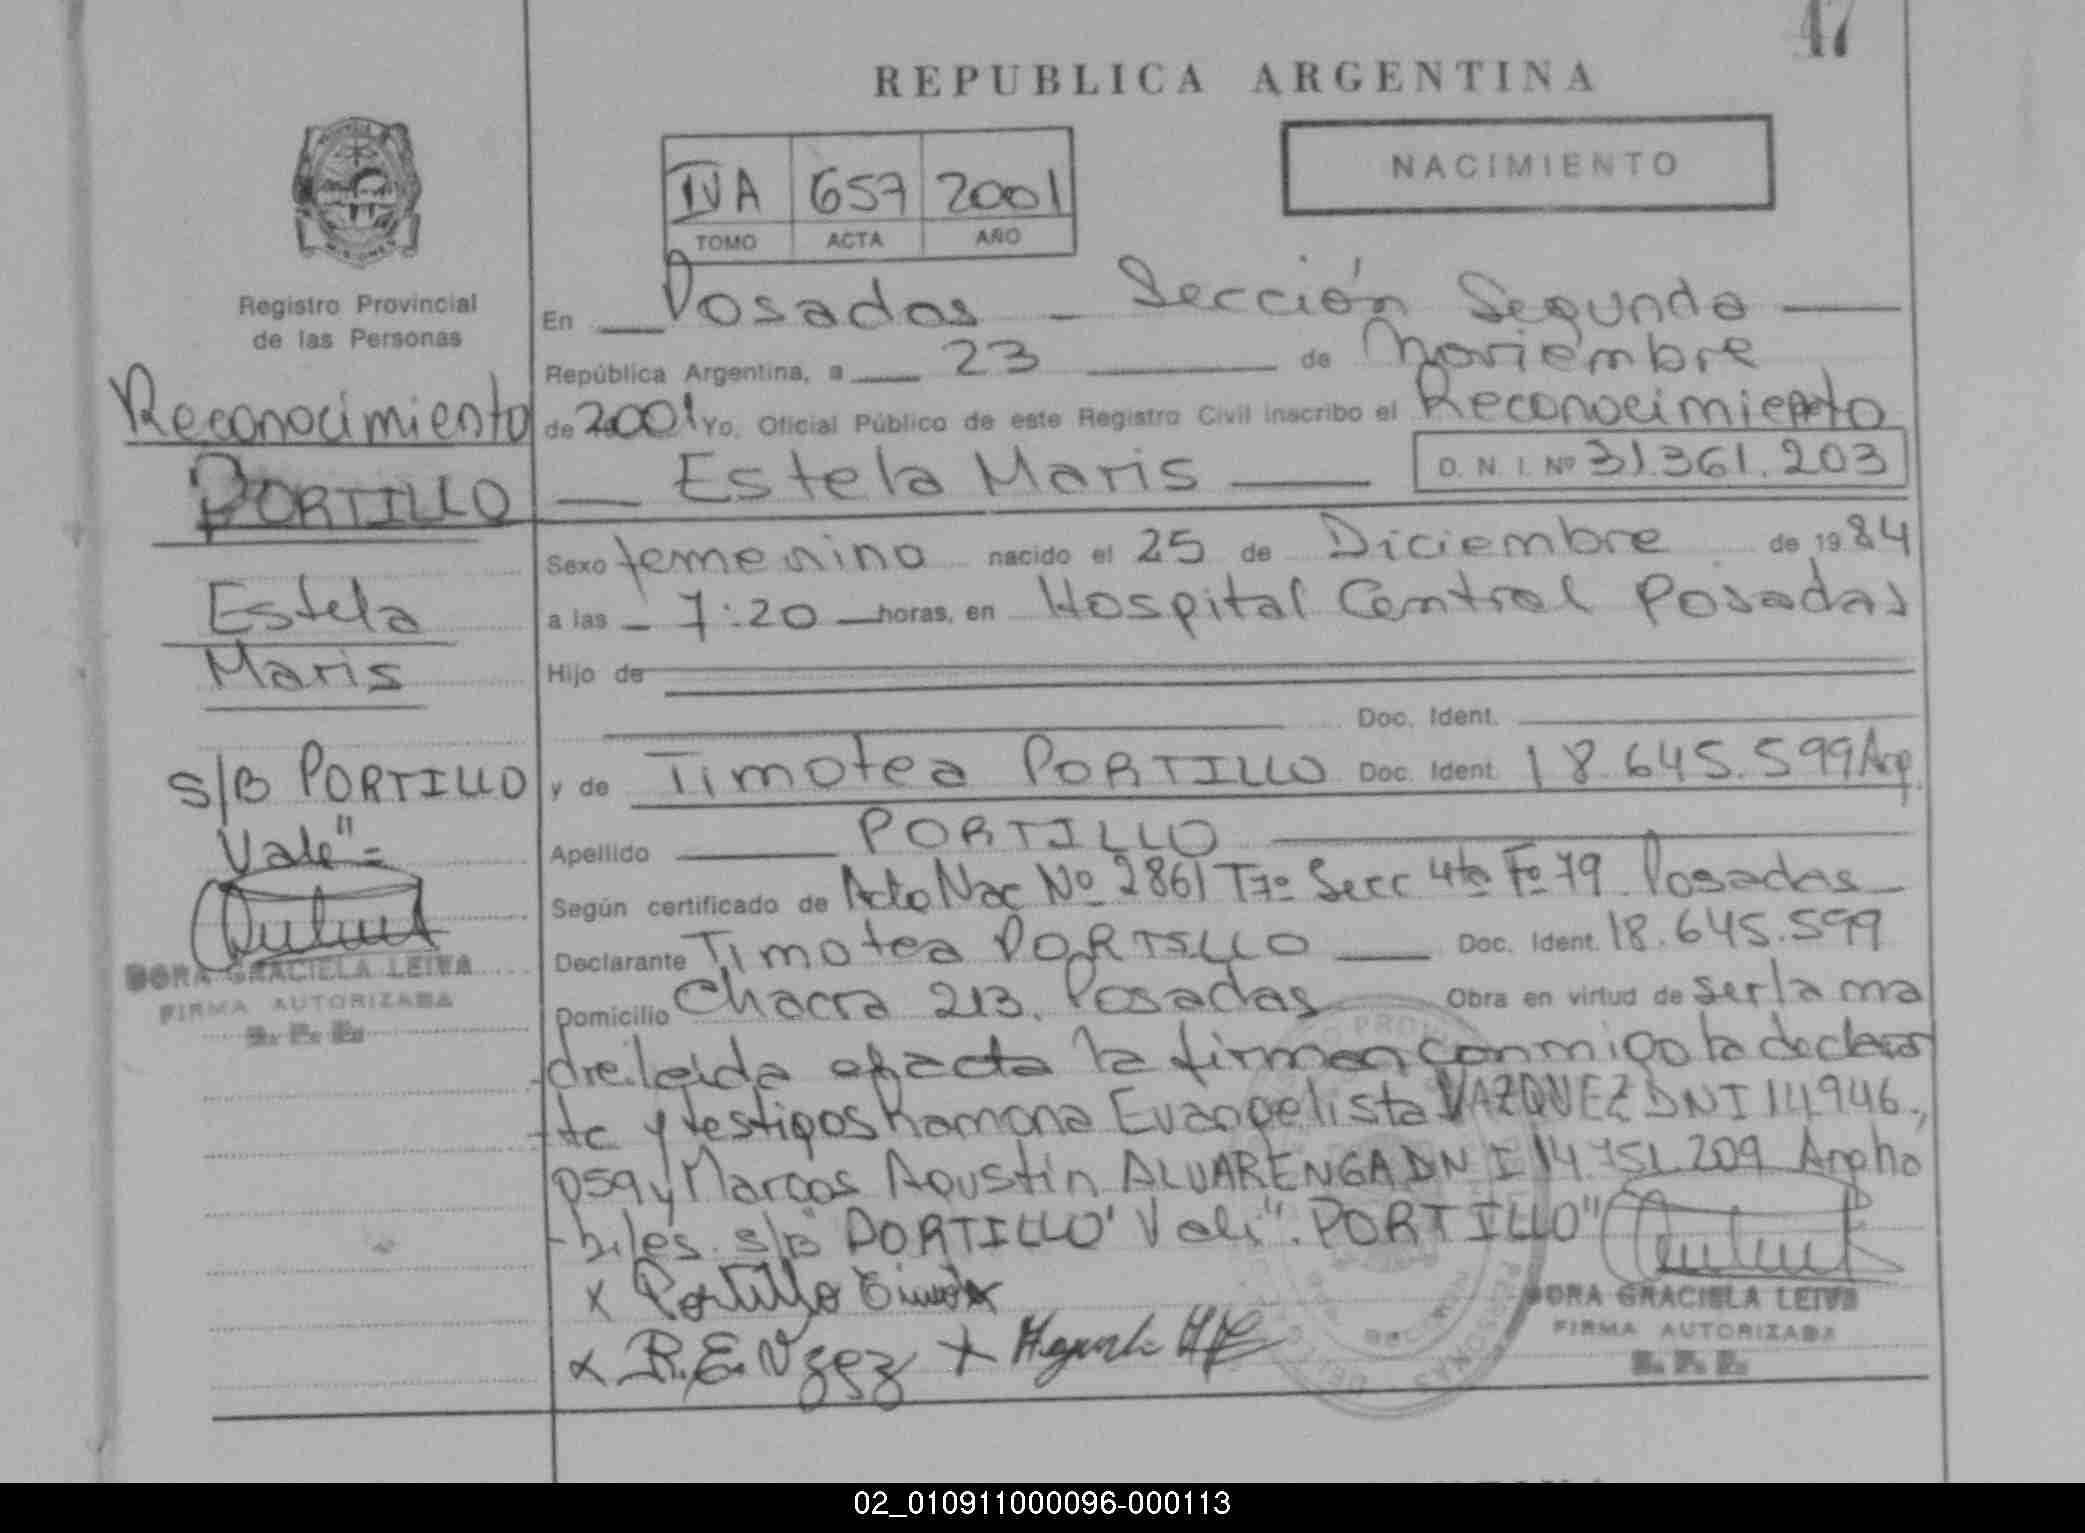 47
REPUBLICA ARGENTINA
NACIMIENTO
IVA 657 2001
TOMO ACTA AÑO
Registro Provincial
de las Personas
Reconocimiento
PORTILLO
Estela
Maris
S/B PORTILLO
Vale"=
DORA GRACIELA LEIVA
FIRMA AUTORIZADA
En Posadas - Sección Segunda
República Argentina, a 23 de Noviembre
de 2001 Yo, Oficial Público de este Registro Civil inscribo el Reconocimiento
Estela Maris D. N. I. Nº 31.361.203
Sexo femenino nacido el 25 de Diciembre de 1984
a las - 7:20 horas, en Hospital Central Posadas
Hijo de
Doc. Ident.
y de Timotea PORTILLO Doc. Ident. 18.645.599 Arg.
Apellido PORTILLO
Según certificado de Acta Nac Nº 2861 T7º Secc 4ta Fº 79 Posadas
Declarante Timotea PORTILLO Doc. Ident. 18.645.599
Domicilio Chacra 213. Posadas Obra en virtud de ser la ma
dre. leida el acta la firman conmigo la declaran
-te y testigos Ramona Evangelista VAZQUEZ DNI 14.946.,
059 y Marcos Agustín ALVARENGA DNI 14.751.209 Arg há
-biles. s/B PORTILLO" Vale". PORTILLO"
x Portillo Timotea
x R.E. Vzqez x
DORA GRACIELA LEIVA
FIRMA AUTORIZADA
02_010911000096-000113